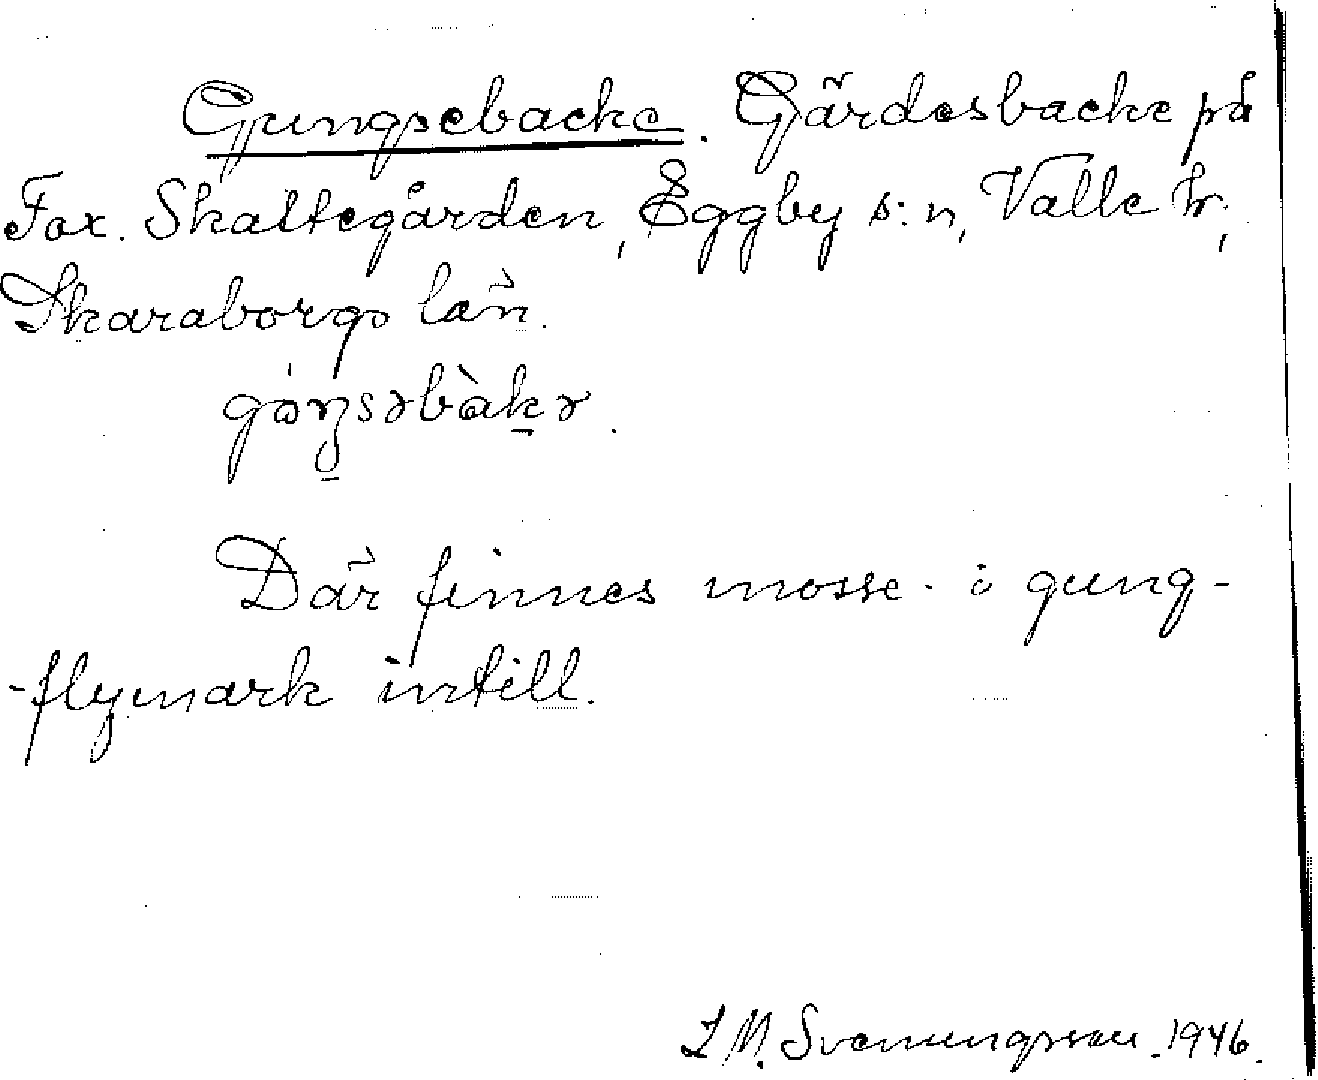 Gungsebacke. Gärdesbacke på
Fax. Skattegården, Eggby s:n, Valle hr,
Skaraborgs län.
Där finnes mosse- i gung-
-flymark intill.
L M. Svenungsson. 1946.